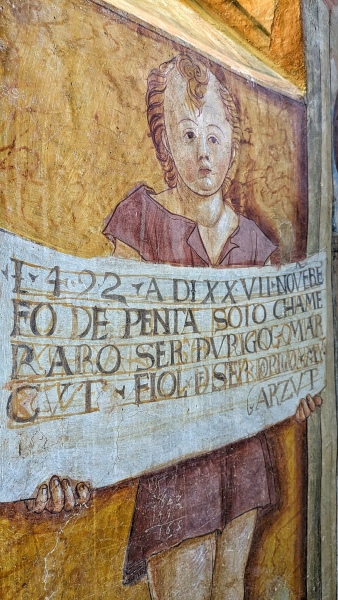 · 1492 · A DI XXVII · NOVERE
FO DE PENTA SOTO CHAME
RARO SER DVRIGO GOVIAR
CVT · FIOL D SER
GARZVT